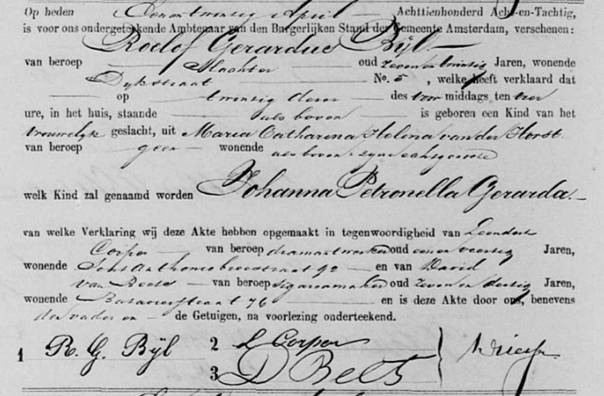 Op heden Een en twintig April Achttienhonderd Acht-en-Tachtig,
is voor ons ondergeteekende Ambtenaar van den Burgerlijken Stand der Gemeente Amsterdam, verschenen:
Rodolf Gerardus Bijl
van beroep Slachter oud zeven en twintig Jaren, wonende
Dijkstraat No. 5, welke heeft verklaard dat
op twintig dezer des voor middags ten vier
ure, in het huis, staande als boven is geboren een Kind van het
vrouwelijk geslacht, uit Maria Catharina Helena van der Horst
van beroep geen wonende
als boven zijne echtgenoote
welk Kind zal genaamd worden Johanna Petronella Gerarda
van welke Verklaring wij deze Akte hebben opgemaakt in tegenwoordigheid van Leendert
Corper van beroep diamantwerker oud een en veertig Jaren,
wonende Sint Anthoniebreestraat 92 en van David
van Beets van beroep sigarenmaker oud zeven en dertig Jaren,
wonende Batavierstraat 76 en is deze Akte door ons, benevens
den vader en de Getuigen, na voorlezing onderteekend.
1 R. G. Bijl 2 L Corper
3 D Beets